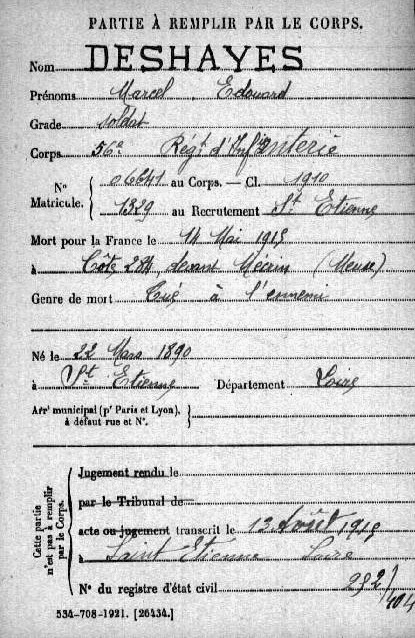 PARTIE À REMPLIR PAR LE CORPS.
Nom DESHAYES
Prénoms Marcel Edouard
Grade soldat
Corps 56e Régt d'Infanterie
N° Matricule. { 06641 au Corps. — Cl. 1910
1329 au Recrutement St Etienne
Mort pour la France le 14 Mai 1915
à Côte 284, devant (Meuse)
Genre de mort Tué à l'ennemi
Né le 22 Mars 1890
à St Etienne Département Loire
Arrt municipal (pr Paris et Lyon), à défaut rue et N°.
Cette partie n'est pas à remplir par le Corps.
Jugement rendu le
par le Tribunal de
acte ou jugement transcrit le 13 Août 1915
à Saint Etienne Loire
N° du registre d'état civil 232/104
534-708-1921. [26434.]